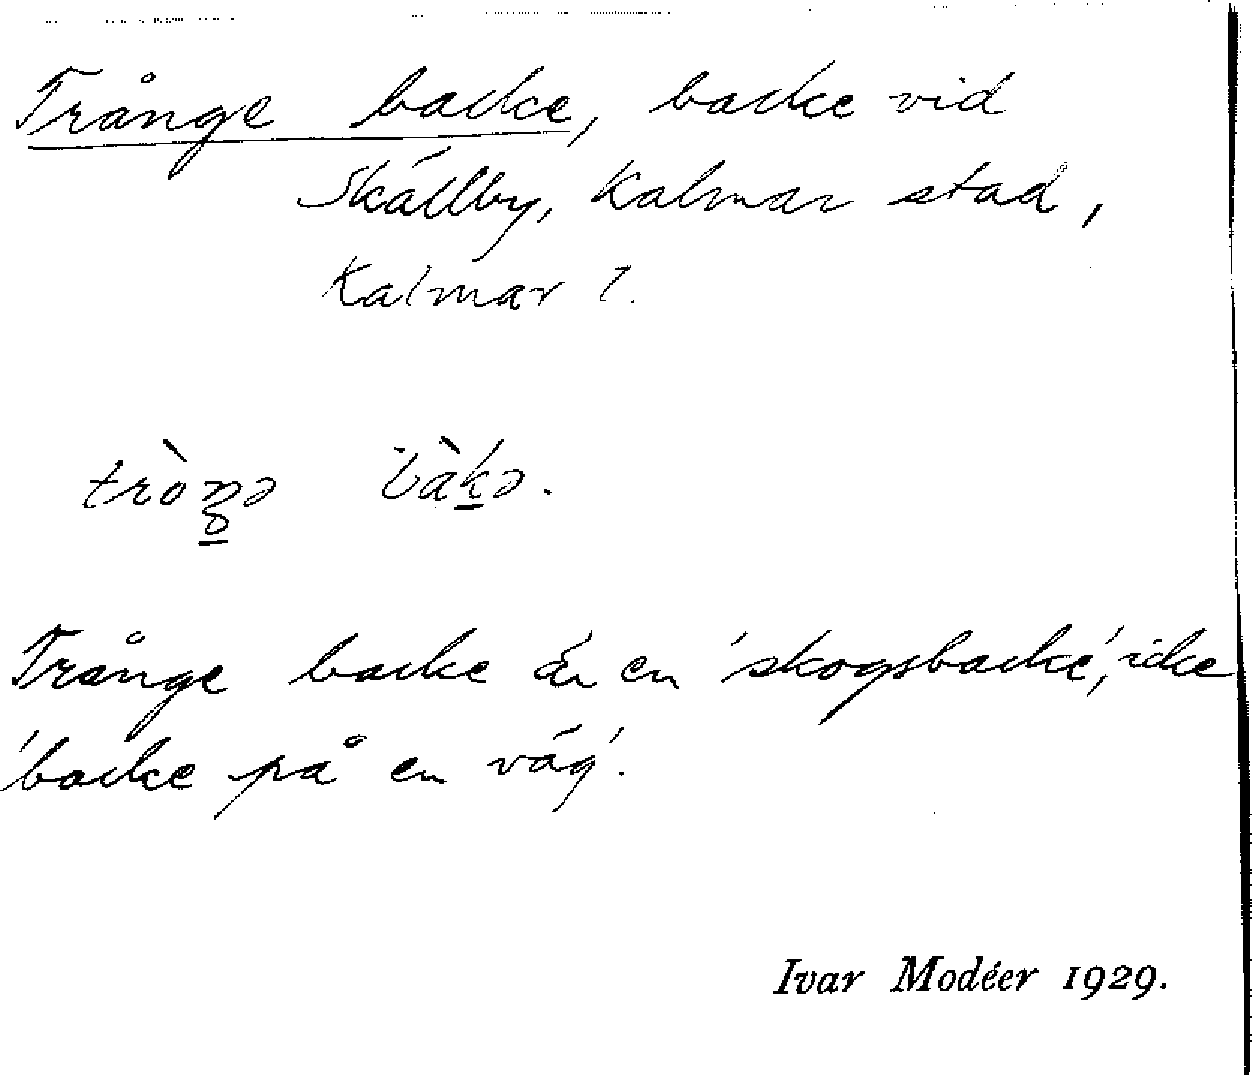 Trånge backe, backe vid
Skällby, Kalmar stad,
Kalmar l.
tròŋə bàkə.
Trånge backe är en 'skogsbacke', icke
'backe på en väg'.
Ivar Modéer 1929.